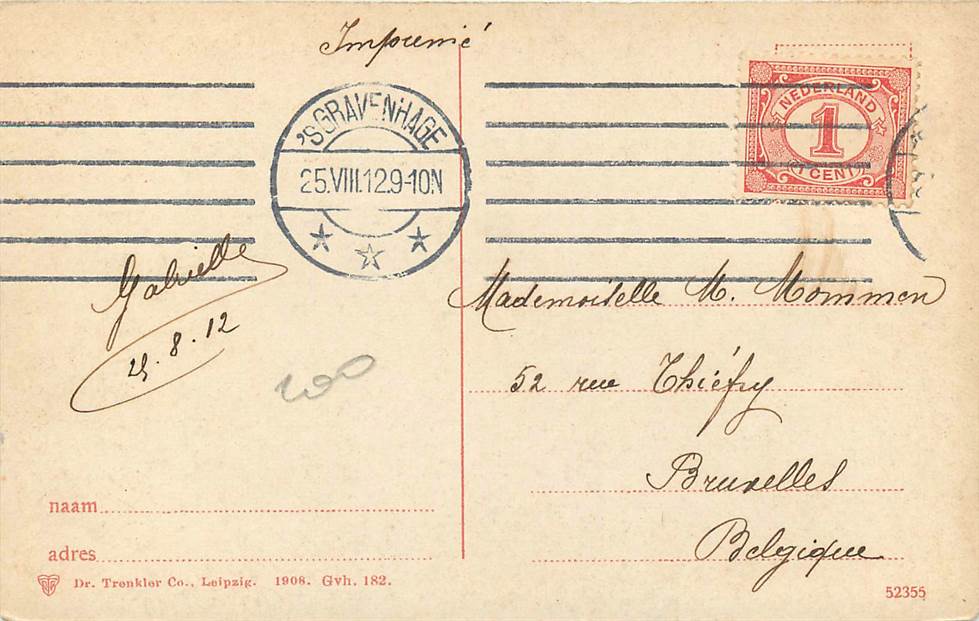 Imprimé
'SGRAVENHAGE
25.VIII.12.9-10N
NEDERLAND
1
1 CENT
Gabrielle
25.8.12
200
Mademoiselle M. Mommen
52 rue Thiéfry
Bruxelles
Belgique
naam
adres
Dr. Trenkler Co., Leipzig. 1908. Gvh. 182.
52355